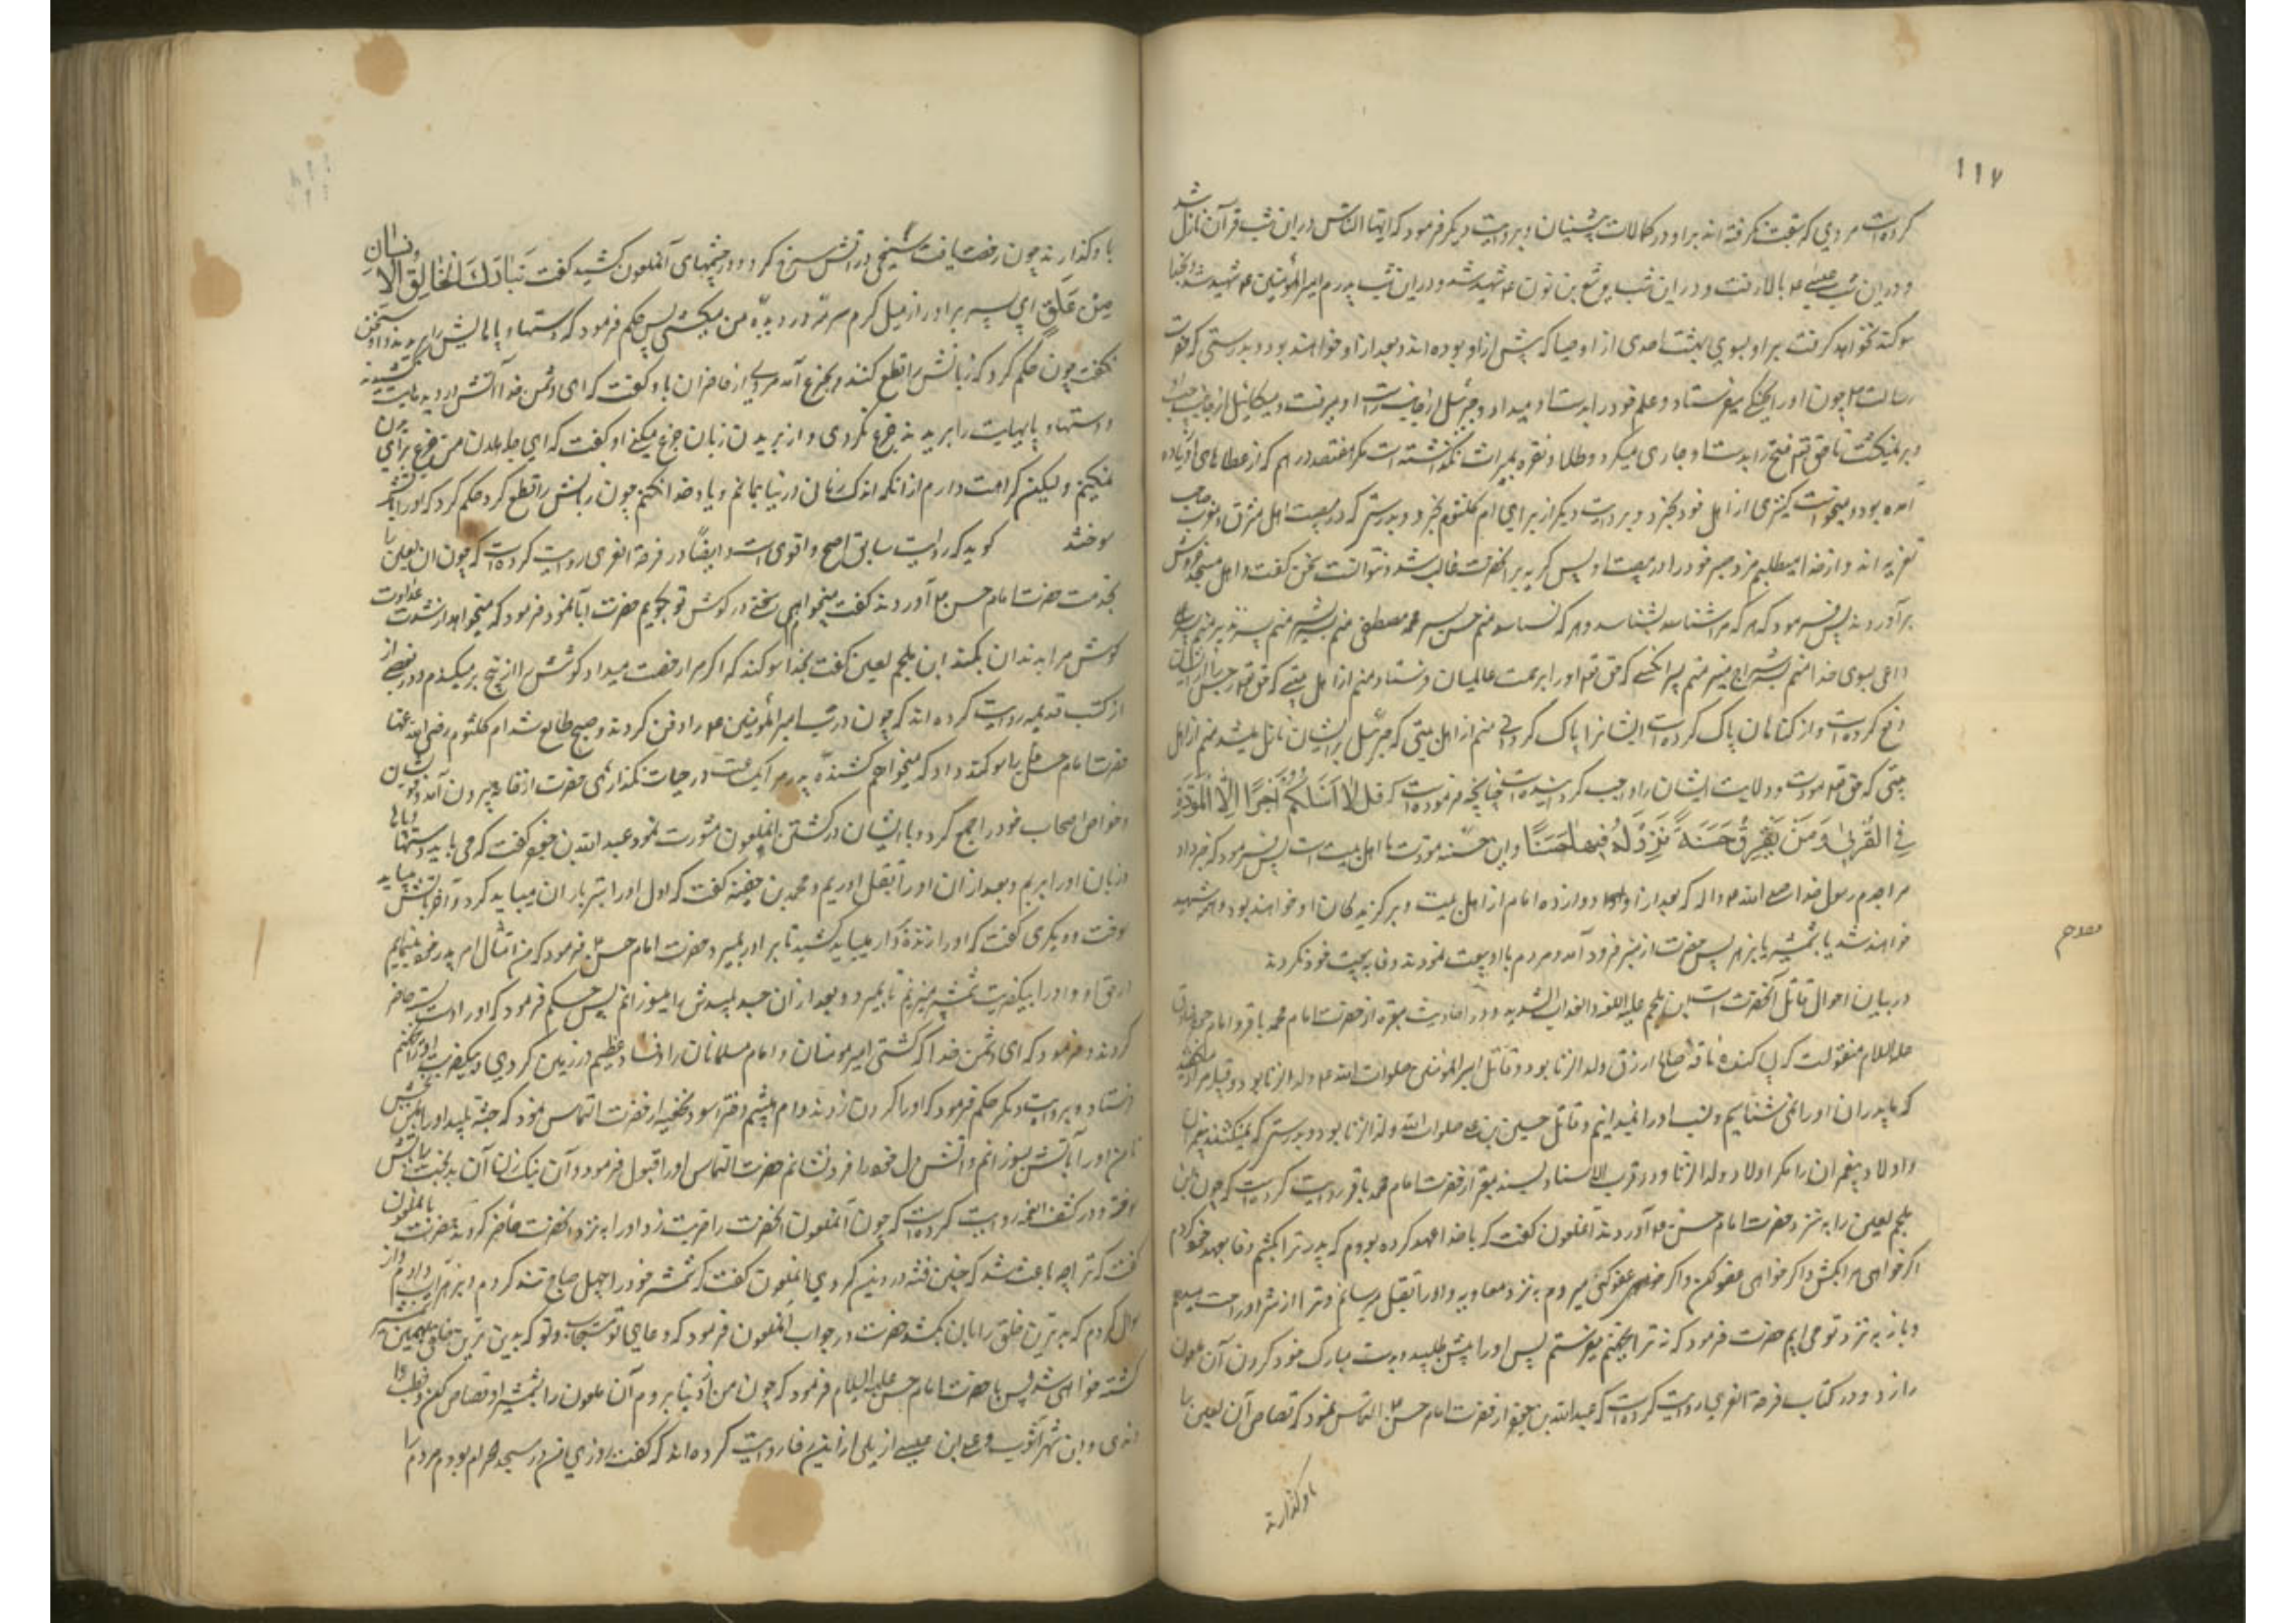 ۱۱۷
كرده است مردي كه سبقت نگرفته اند بر او در كمالات پيشينيان و بروايت ديگر فرمود كه ايها الناس در اين شب قرآن نازل شد
و در اين شب عيسي ع بالا رفت و در اين شب يوشع بن نون ع شهيد شد و در اين شب پدرم امير المؤمنين ع شهيد شد و بخدا
سوكند نخواهد گرفت بر او بسوي بهشت احدي از اوصيا كه پيش از او بوده اند و بعد از او خواهند بود و بدرستي كه حضرت
رسالت ص چون او را بجنگي ميفرستاد و علم خود را بدست او ميداد و جبرئيل از جانب راست او ميرفت و ميكائيل از جانب چپ او
و بر نميگشت تا حق تع فتح را بدست او جاري ميكرد و طلا و نقره بميراث نگذاشته است مگر هفتصد درهم كه از عطاهاي او زياده
آمده بود و ميخواست كنيزي از اهل خود بخرد و بروايت ديگر از براي ام كلثوم بخرد و بدرستي كه در مصيبت اهل مشرق و مغرب صاحب
تعزيه اند و از خدا ميطلبم مزد و صبر خود را در مصيبت او پس گريه بر آنحضرت غالب شد و نتوانست سخن گفت و اهل مسجد خروش
برآوردند پس فرمود كه هر كه مرا شناسد بشناسد و هر كه نشناسد منم حسن پسر محمد مصطفي منم پسر بشير منم پسر نذير منم پسر
داعي بسوي خدا منم پسر سراج منير منم پسر آنكسي كه حق تع او را برحمت عالميان فرستاد منم از اهل بيتي كه حق تع رجس را از ايشان
دفع كرده است و از گناهان پاك كرده است ايشانرا پاك كردني منم از اهل بيتي كه جبرئيل بر ايشان نازل ميشد منم از اهل
بيتي كه حق تع مودت و ولايت ايشان را واجب گردانيده است چنانچه فرموده است كه قُل لا اَسئَلُكُم اَجرًا اِلَّا المَوَدَّةَ
فِي القُربىٰ وَ مَن يَقتَرِف حَسَنَةً نَزِد لَهُ فِيها حُسنًا و اين حسنه مودت ما اهل بيت است پس فرمود كه خبر داد
مرا جدم رسول خدا صلي الله عليه و اله كه بعد از او دوازده امام از اهل بيت و برگزيدگان او خواهند بود و همه شهيد
خواهند شد يا بشمشير يا بزهر پس حضرت از منبر فرود آمد و مردم با او بيعت نمودند و وفا به بيعت خود نكردند
در بيان احوال قاتل آنحضرت است ابن ملجم عليه اللعنه و العذاب الشديد و در احاديث معتبره از حضرت امام محمد باقر و امام جعفر صادق
عليه السلام منقولست كه پي كننده ناقه صالح ازرق ولد الزنا بود و قاتل امير المؤمنين صلوات الله ع ولد الزنا بود و قبيله مراد ميگفتند
كه ما پدر آن او را نمي شناسيم و نسب او را نميدانيم و قاتل حسين بن علي صلوات الله ولد الزنا بود و بدرستي كه نميكشند پيغمبران
و اولاد پيغمبران را مگر اولاد ولد الزنا و در قرب الاسناد بسند معتبر از حضرت امام محمد باقر روايت كرده است كه چون ابن
ملجم لعين را به نزد حضرت امام حسن ع آوردند آنملعون گفت كه با خدا عهد كرده بودم كه پدر ترا بكشم و وفا بعهد خود كردم
اگر خواهي مرا بكش و اگر خواهي عفو كن و اگر عفو كني ميروم به نزد معاويه و او را بقتل ميرسانم و ترا از شر او راحت ميدهم
و باز به نزد تو مي ايم حضرت فرمود كه نه ترا بجهنم ميفرستم پس او را پيش طلبيد و بدست مبارك خود گردن آن ملعون
را زد و در كتاب فرحة الغري روايت كرده است كه عبدالله بن جعفر از حضرت امام حسن ع التماس نمود كه قصاص آن لعين را
باو گذارند
باو گذارند چون رخصت يافت ميخي در آتش سرخ كرد و در چشمهاي آنملعون كشيد گفت تَبارَكَ الخالِقُ الاِنسان
مِن عَلَقٍ اي پسر برادر از ميل گرم سرمه در ديده من ميكشي پس حكم فرمود كه دستها و پاهايش را بريدند و او سخن
نگفت چون حكم كرد كه زبانش را قطع كنند بجزع آمد مردي از حاضران باو گفت كه اي دشمن خدا آتش در ديده هايت كشيدند
و دستها و پاهايت را بريدند جزع نكردي و از بريدن زبان جزع ميكني او گفت كه اي جاهلان من جزع براي بريدن
نميكنم وليكن كراهت دارم از آنكه اندك زماني در دنيا بمانم و ياد خدا نكنم چون زبانش را قطع كرد حكم كرد كه او را باتش
سوختند گويد كه روايت سابق اصح و اقوي است و ايضًا در فرحة الغري روايت كرده است كه چون آن لعين را
بخدمت حضرت امام حسن ع آوردند گفت ميخواهم سخني در گوش تو بگويم حضرت ابا نمود فرمود كه ميخواهد از شدت عداوت
گوش مرا بدندان بكند ابن ملجم لعين گفت بخدا سوكند كه اگر مرا رخصت ميداد گوشش را از بيخ بر ميكندم و در بعضي از
كتب قديمه روايت كرده اند كه چون در شب امير المؤمنين ع را دفن كردند و صبح طالع شد ام كلثوم رضي الله عنها
حضرت امام حسن را سوكند داد كه ميخواهم كشنده پدرم را يكساعت در حيات نگذاري حضرت از خانه بيرون آمد و خويشان
و خواص اصحاب خود را جمع كرد و با ايشان در كشتن آنملعون مشورت نمود عبدالله بن جعفر گفت كه مي بايد دستها و پاها
و زبان او را ببريم و بعد از آن او را بقتل آوريم و محمد بن حنفيه گفت كه اول او را تير باران ميبايد كرد و آخر باتش ميبايد
سوخت و ديگري گفت كه او را زنده بردار ميبايد كشيد تا بر او بميرد حضرت امام حسن ع فرمود كه من امتثال امر پدر خود مينمايم
در حق او و او را بيكضربت شمشير ميزنم تا بميرد و بعد از آن جسد پليدش را ميسوزانم پس حكم فرمود كه او را دست بسته حاضر
كردند و فرمود كه اي دشمن خدا كشتي امير مومنان و امام مسلمانان را و فساد عظيم در زمين كردي و بيكضربت او را بجهنم
فرستاد و بروايت ديگر حكم فرمود كه او را گردن زدند و ام هيثم دختر اسود نخعيه از حضرت التماس نمود كه جثه پليد او را بمن بخش
تا من او را بآتش بسوزانم و آتش دل خود را فرو نشانم حضرت التماس او را قبول فرمود و آن نيك زن آن بدبخت را باتش
سوخت و در كشف الغمه روايت كرده است كه چون آنملعون آنحضرت را ضربت زد او را به نزد آنحضرت حاضر كردند حضرت بآنملعون
گفت كه ترا چه باعث شد كه چنين فتنه در دين كردي آنملعون گفت كه شمشير خود را چهل صباح تند كردم و بزهر آب دادم و از
سوال كردم كه بدترين خلق را بآن بكشد حضرت در جواب آنملعون فرمود كه دعاي تو مستجاب و تو كه بدترين خلقي بهمين شمشير
كشته خواهي شد پس با حضرت امام حسن عليه السلام فرمود كه چون من از دنيا بروم آن ملعون را بشمشير او قصاص كن و قطب
راوندي و ابن شهر آشوب و علي ابن عيسي از ابن رفا روايت كرده اند كه گفت روزي من در مسجد حرام بودم مردم را